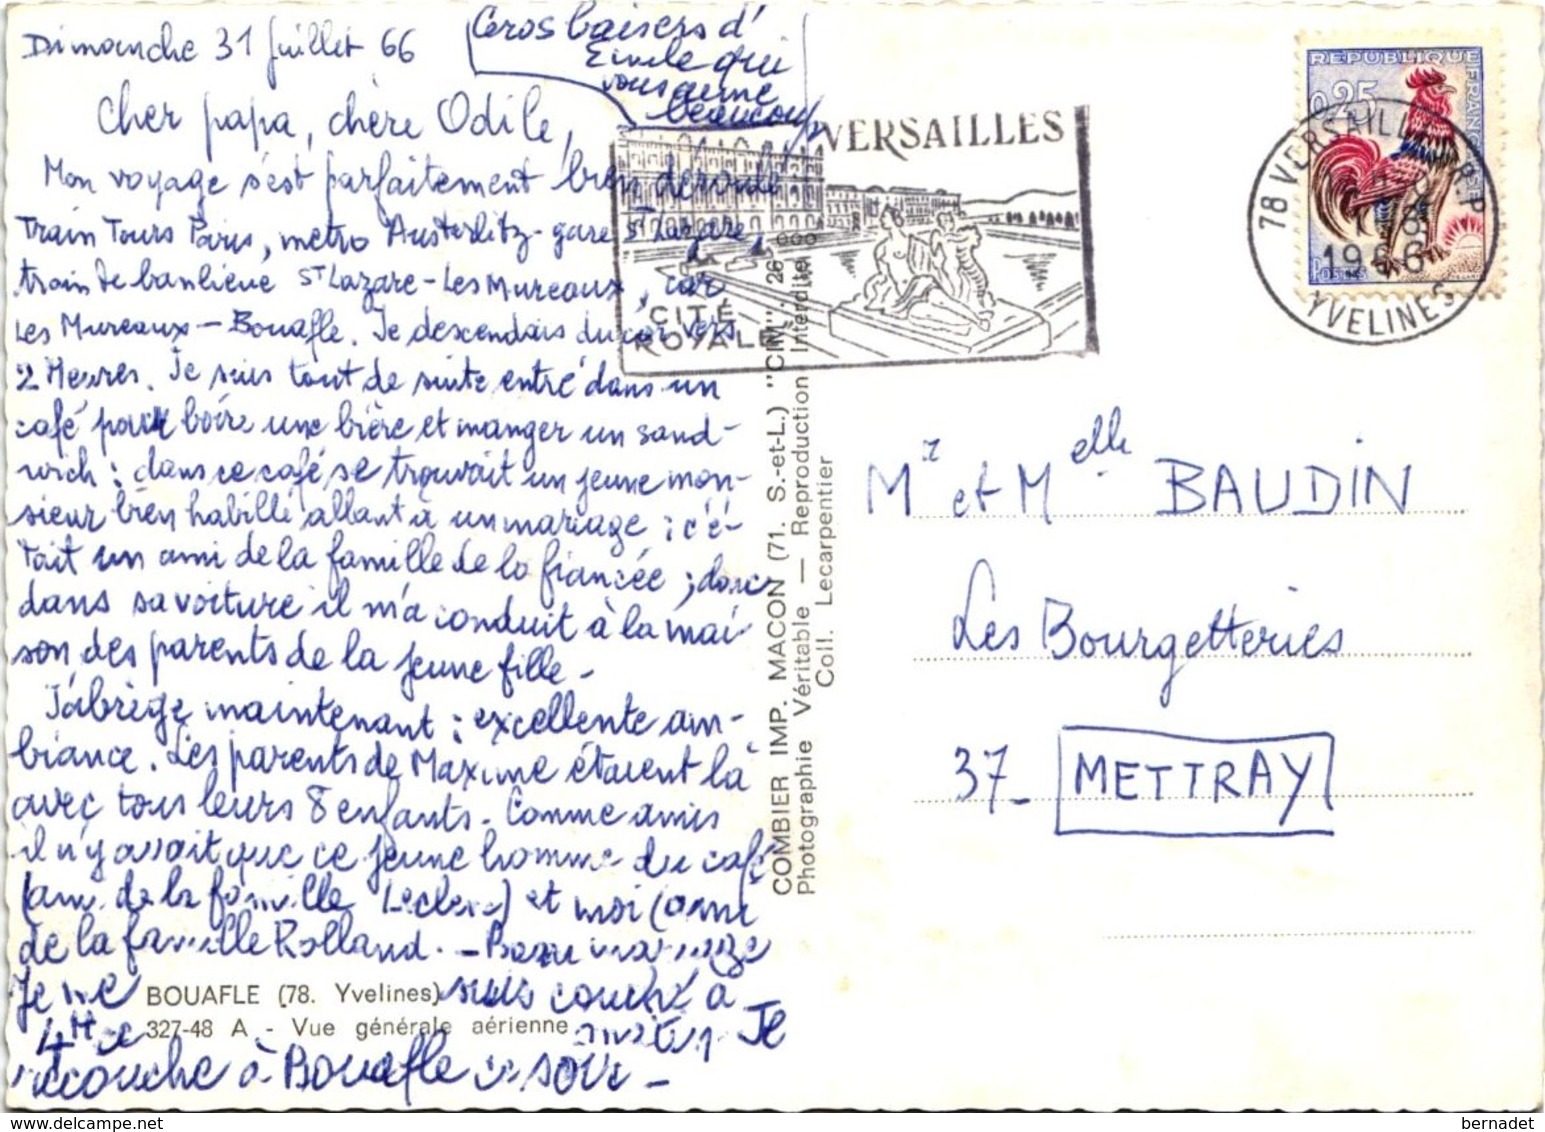 Dimanche 31 Juillet 66
Gros baisers d'
Emile qui
vous aime
beaucoup
Cher papa, chère Odile,
Mon voyage s'est parfaitement bien déroulé
Train Tours Paris, métro Austerlitz - gare St Lazare,
train de banlieue St Lazare - Les Mureaux, car
Les Mureaux - Bouafle. Je descendais du car vers
2 Heures. Je suis tout de suite entré dans un
café pour boire une bière et manger un sand-
wich : dans ce café se trouvait un jeune mon-
sieur bien habillé allant à un mariage : c'é-
tait un ami de la famille de la fiancée ; donc
dans sa voiture il m'a conduit à la mai-
son des parents de la jeune fille -
J'abrège maintenant : excellente am-
biance. Les parents de Maxime étaient là
avec tous leurs 8 enfants. Comme amis
il n'y avait que ce jeune homme du café
(ami de la famille Leclerc) et moi (ami
de la famille Rolland. - Beau mariage
Je me suis couché à
4H ce matin. Je
recouche à Bouafle ce soir -
BOUAFLE (78. Yvelines)
327-48 A. - Vue générale aérienne
COMBIER IMP. MACON (71. S.-et-L.) "CIM"
Photographie Véritable — Reproduction Interdite
Coll. Lecarpentier
VERSAILLES
CITÉ
ROYALE
REPUBLIQUE FRANÇAISE
0,25
POSTES
78 VERSAILLES R.P
1966
YVELINES
Mr et Melle BAUDIN
Les Bourgetteries
37_ METTRAY
bernadet